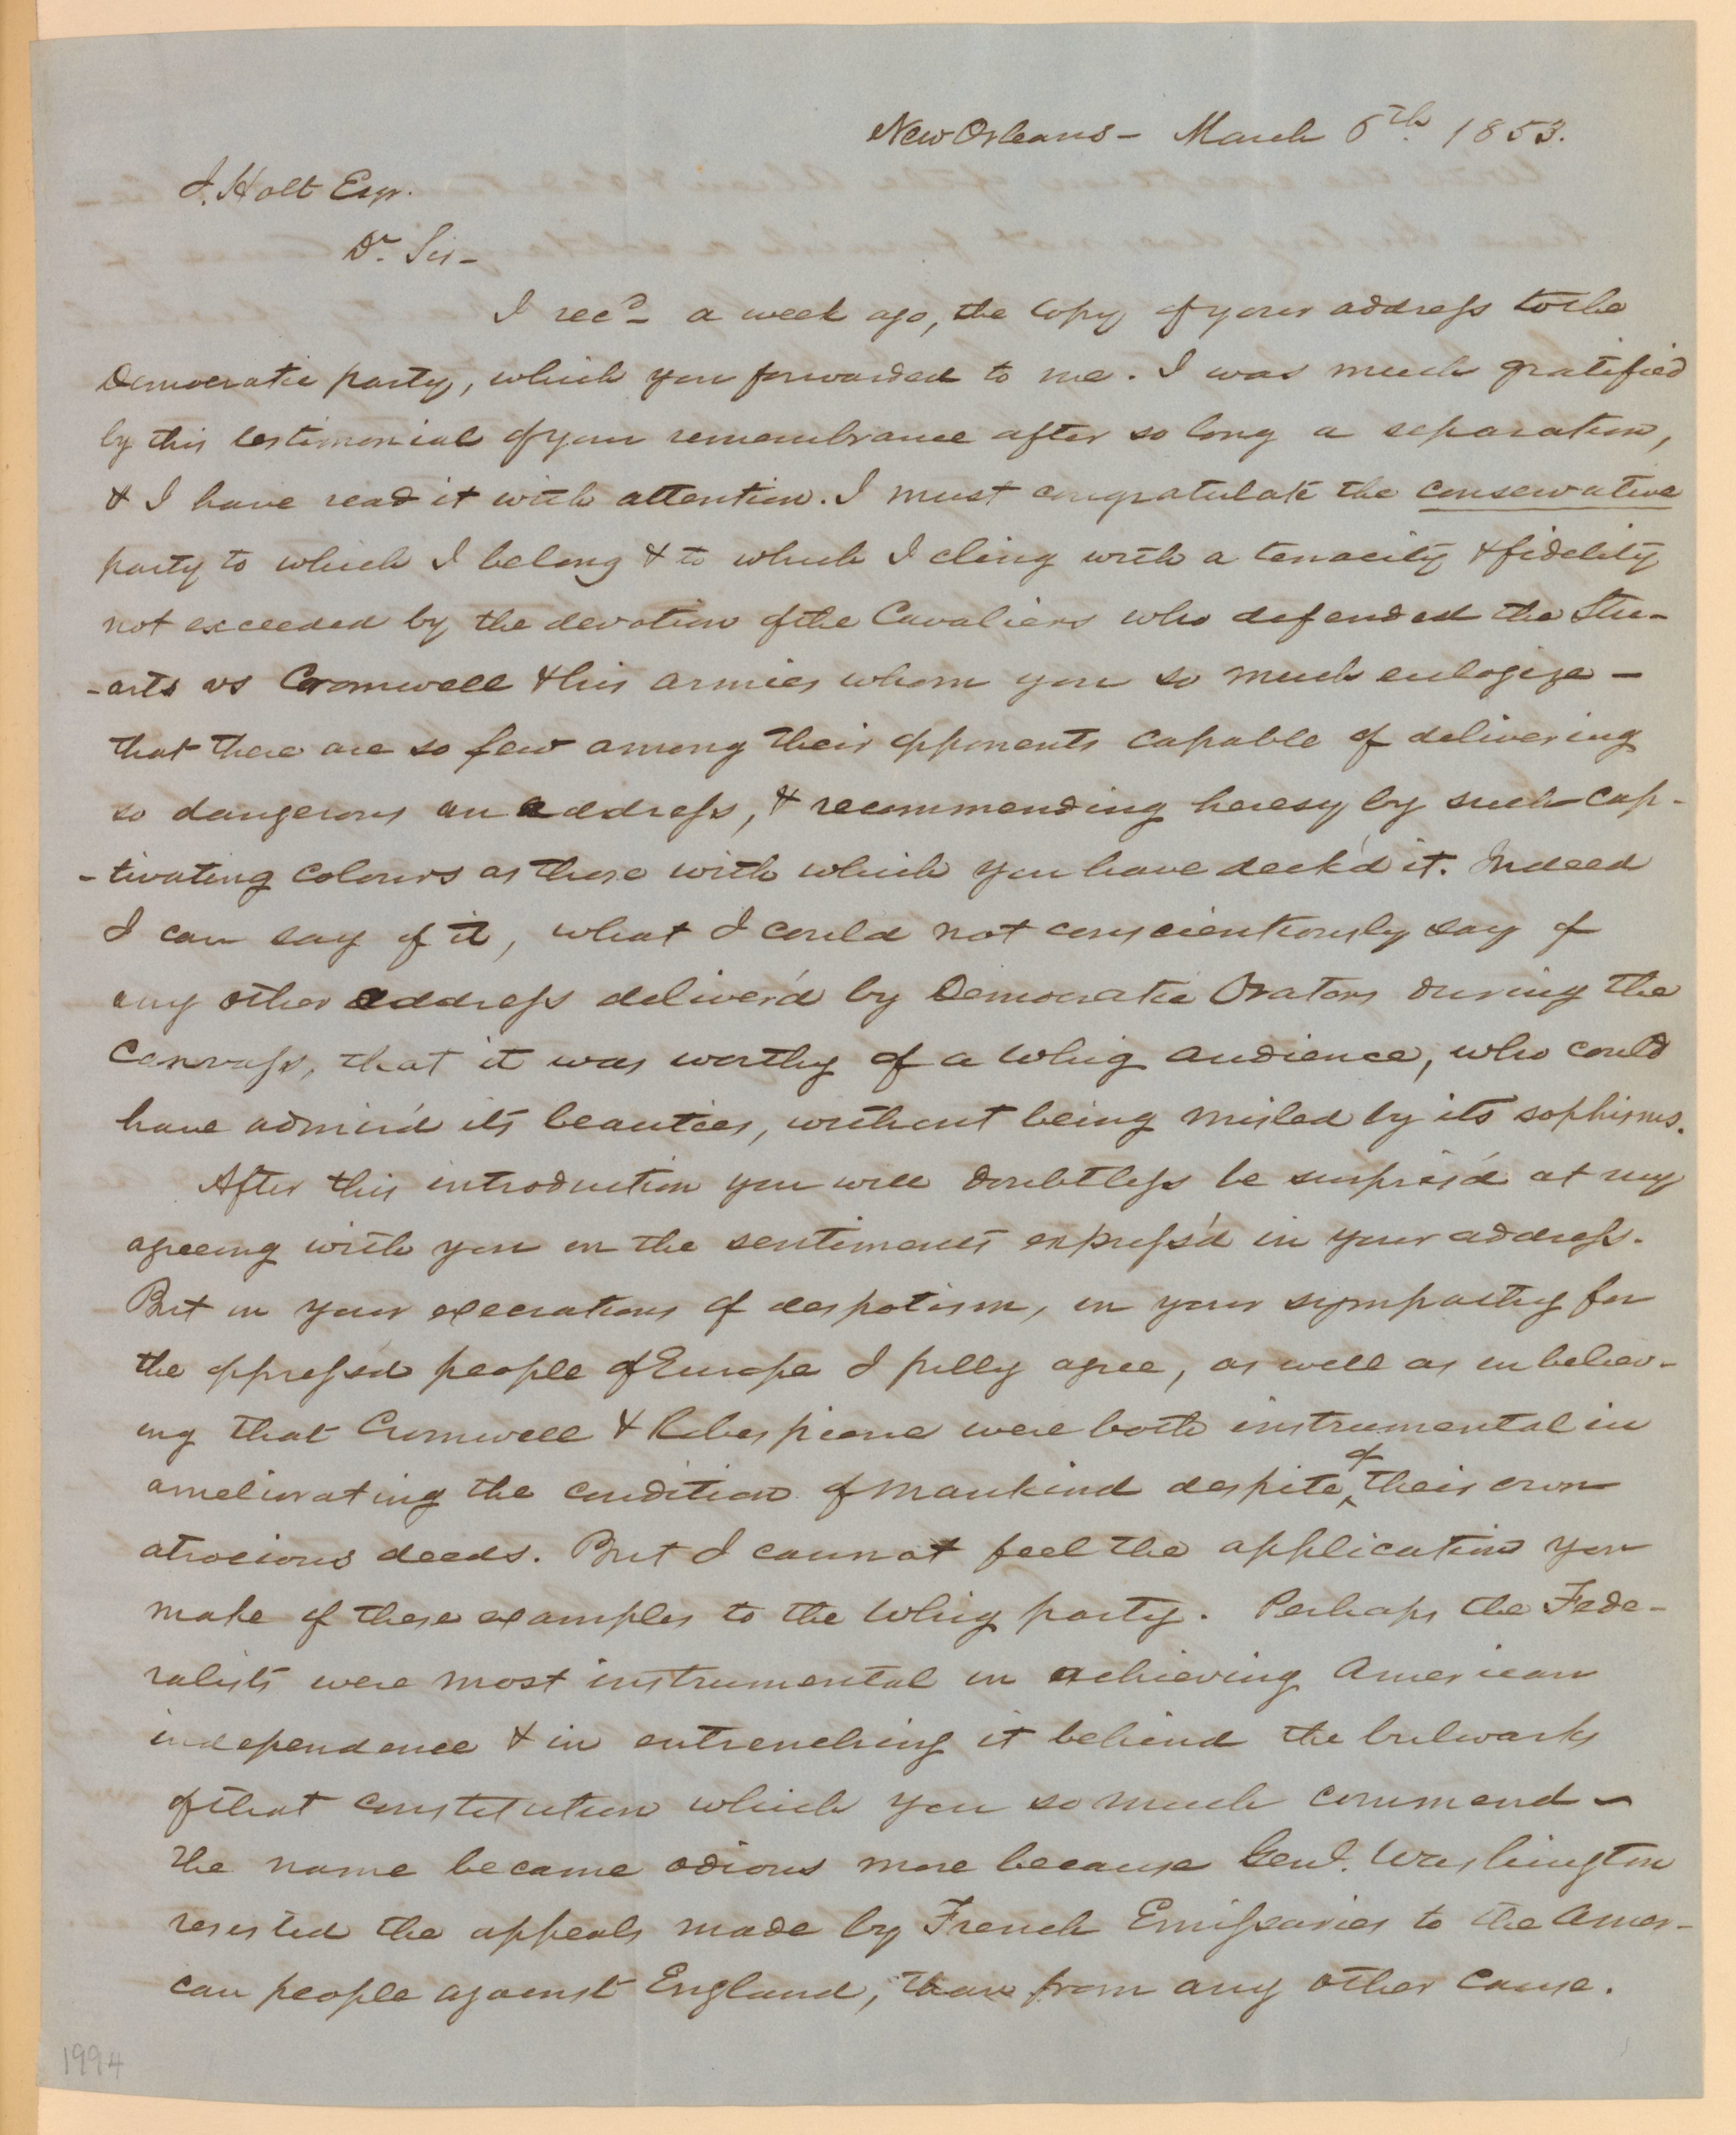 New Orleans - March 6th. 1853.
J. Holt Esqr.
Dr. Sir -
I recd - a week ago, the copy of your address to the
Democratic party, which you forwarded to me. I was much gratified
by this testimonial of your remembrance after so long a separation,
& I have read it with attention. I must congratulate the conservative
party to which I belong & to which I cling with a tenacity & fidelity
not exceeded by the devotion of the Cavaliers who defended the Stu-
-arts vs Cromwell & his armies whom you so much eulogize -
that there are so few among their opponents capable of delivering
so dangerous an address, & recommending heresy by such cap-
-tivating colours as those with which you have deck'd it. Indeed
I can say of it, what I could not conscientiously say of
any other address deliver'd by Democratic Orators during the
Canvass, that it was worthy of a Whig audience, who could
have admir'd its beauties, without being misled by its sophisms.
After this introduction you will doubtless be surpris'd at my
agreeing with you in the sentiments express'd in your address.
But in your execrations of despotism, in your sympathy for
the oppress'd people of Europe I fully agree, as well as in believ-
ing that Cromwell & Robespierre were both instrumental in
ameliorating the condition of mankind despite of their own
atrocious deeds. But I cannot feel the application you
make of these examples to the Whig party. Perhaps the Fede-
ralists were most instrumental in achieving American
independence & in entrenching it behind the bulwarks
of that constitution which you so much commend -
The name became odious more because Genl. Washington
resisted the appeals made by French Emissaries to the Ameri-
can people against England, than from any other cause.
1994